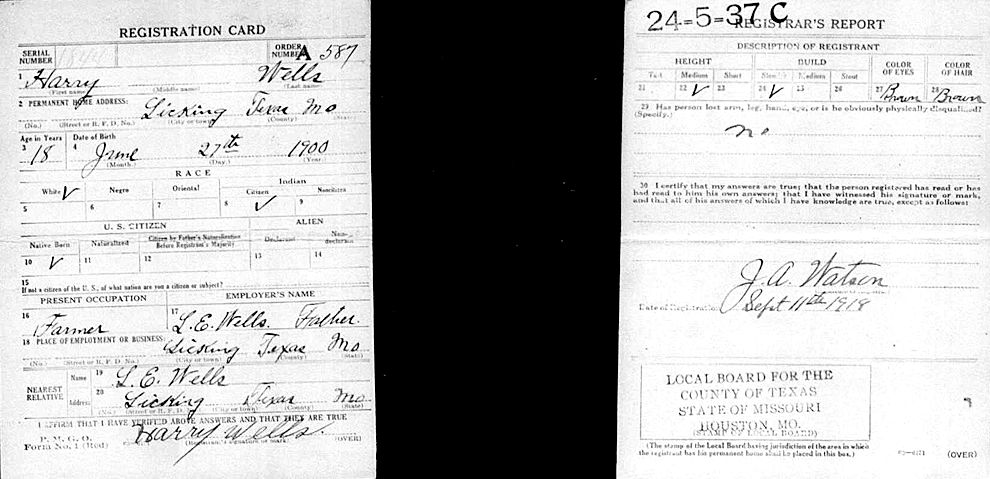 REGISTRATION CARD
SERIAL NUMBER
ORDER NUMBER A 587
1 Harry Wells
(First name) (Middle name) (Last name)
2 PERMANENT HOME ADDRESS:
Licking Texas Mo
(No.) (Street or R. F. D. No.) (City or town) (County) (State)
Age in Years Date of Birth
3 18 4 June 27th 1900
(Month.) (Day.) (Year.)
RACE
White Negro Oriental Indian
Citizen Noncitizen
5 6 7 8 9
✓ ✓
U. S. CITIZEN ALIEN
Native Born Naturalized Citizen by Father's Naturalization Before Registrant's Majority Declarant Non-declarant
10 ✓ 11 12 13 14
15
If not a citizen of the U. S., of what nation are you a citizen or subject?
PRESENT OCCUPATION EMPLOYER'S NAME
16 Farmer 17 L. E. Wells. Father.
18 PLACE OF EMPLOYMENT OR BUSINESS:
Licking Texas Mo
(No.) (Street or R. F. D. No.) (City or town) (County) (State)
NEAREST RELATIVE
Name 19 L. E. Wells
Address 20 Licking Texas Mo
(No.) (Street or R. F. D. No.) (City or town) (County) (State)
I AFFIRM THAT I HAVE VERIFIED ABOVE ANSWERS AND THAT THEY ARE TRUE
P. M. G. O.
Form No. 1 (Red) Harry Wells.
(Registrant's signature or mark) (OVER)
24-5-37 C
REGISTRAR'S REPORT
DESCRIPTION OF REGISTRANT
HEIGHT BUILD COLOR OF EYES COLOR OF HAIR
Tall Medium Short Slender Medium Stout
21 22 ✓ 23 24 ✓ 25 26 27 Brown 28 Brown
29 Has person lost arm, leg, hand, eye, or is he obviously physically disqualified?
(Specify.)
no
30 I certify that my answers are true; that the person registered has read or has
had read to him his own answers; that I have witnessed his signature or mark,
and that all of his answers of which I have knowledge are true, except as follows:
J. A. Watson
Date of Registration Sept 11th 1918
LOCAL BOARD FOR THE
COUNTY OF TEXAS
STATE OF MISSOURI
HOUSTON, MO.
(STAMP OF LOCAL BOARD)
(The stamp of the Local Board having jurisdiction of the area in which
the registrant has his permanent home shall be placed in this box.)
(OVER)